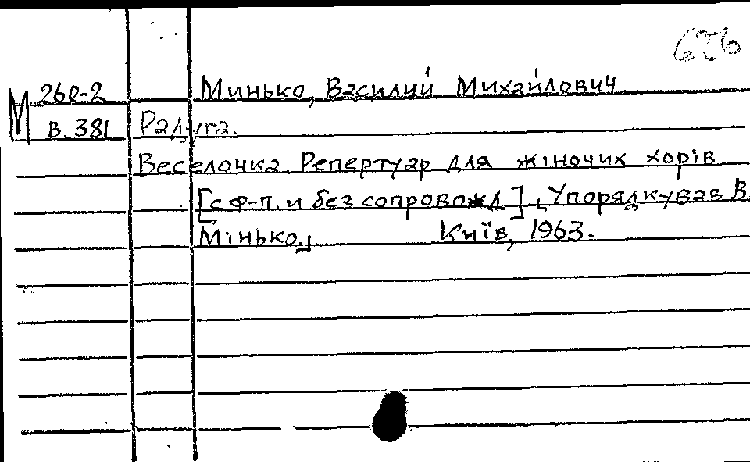 626
М 260-2 Минько, Василий Михайлович
В. 381 Радуга.
Веселочка. Репертуар для жіночих хорів
[с ф-п. и без сопровожд], Упорядкував В.
Мінько. Київ, 1963.